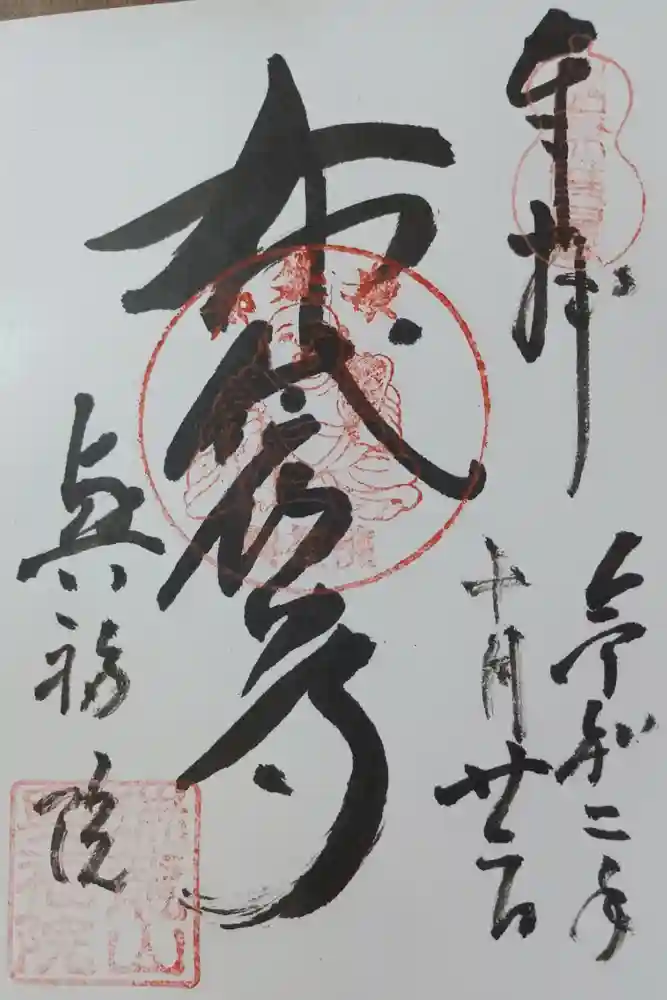 奉拝
令和二年
十月廿一日
布袋尊
眞福院